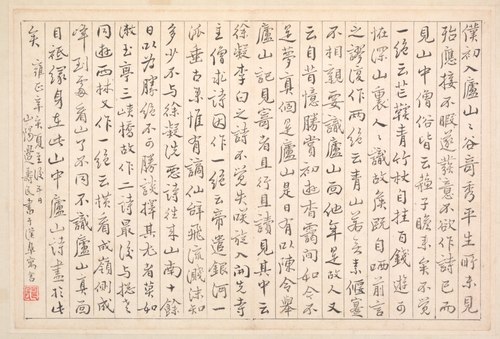 僕初入廬山〻谷奇秀平生所未見
殆應接不暇遂發意不欲作詩已而
見山中僧俗皆云蘓子瞻來矣不覺
一絕云芒鞋青竹杖自挂百錢遊可
怪深山裏人〻識故侯既自哂前言
之謬復作兩絕云青山若無素偃蹇
不相親要識廬山面他年是故人又
云自昔憶勝賞初遊杳靄間如今不
是夢真個是廬山是日有以陳令舉
廬山記見寄者且行且讀見其中云
徐凝李白之詩不覺失咲旋入開先寺
主僧求詩因作一絕云帝遣銀河一
派垂古來惟有謫仙辭飛流濺沫知
多少不与徐凝洗惡詩往來山南十餘
日以為勝絕不可勝談擇其尤者莫如
漱玉亭三峽橋故作二詩最後与摠老
同遊西林又作一絕云橫看成嶺側成
峰到處看山了不同不識廬山真面
目祇緣身在此山中廬山詩盡於此
矣 雍正辛亥夏至後五日
山陽邊壽民書于